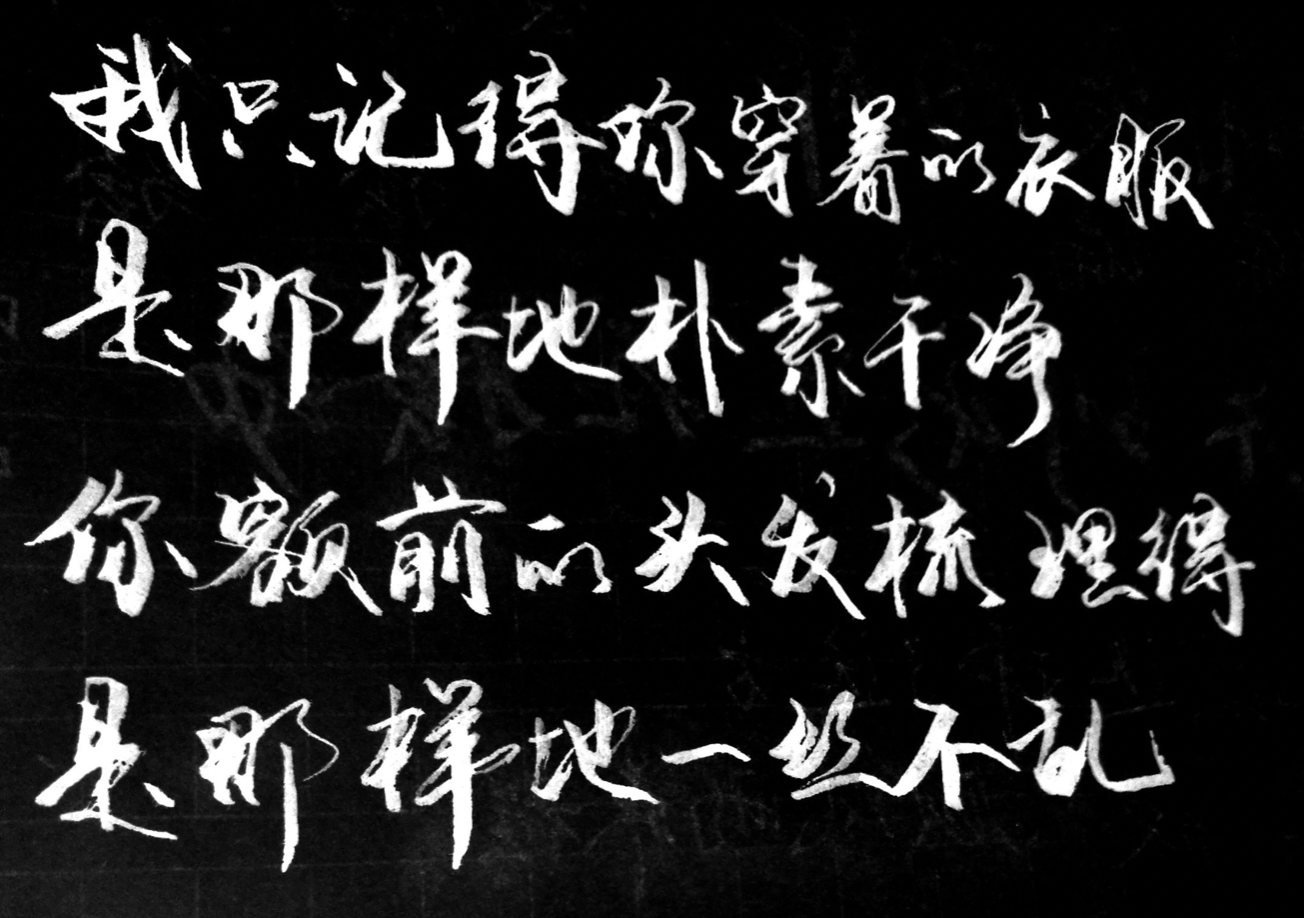 我只记得你穿着的衣服
是那样地朴素干净
你额前的头发梳理得
是那样地一丝不乱